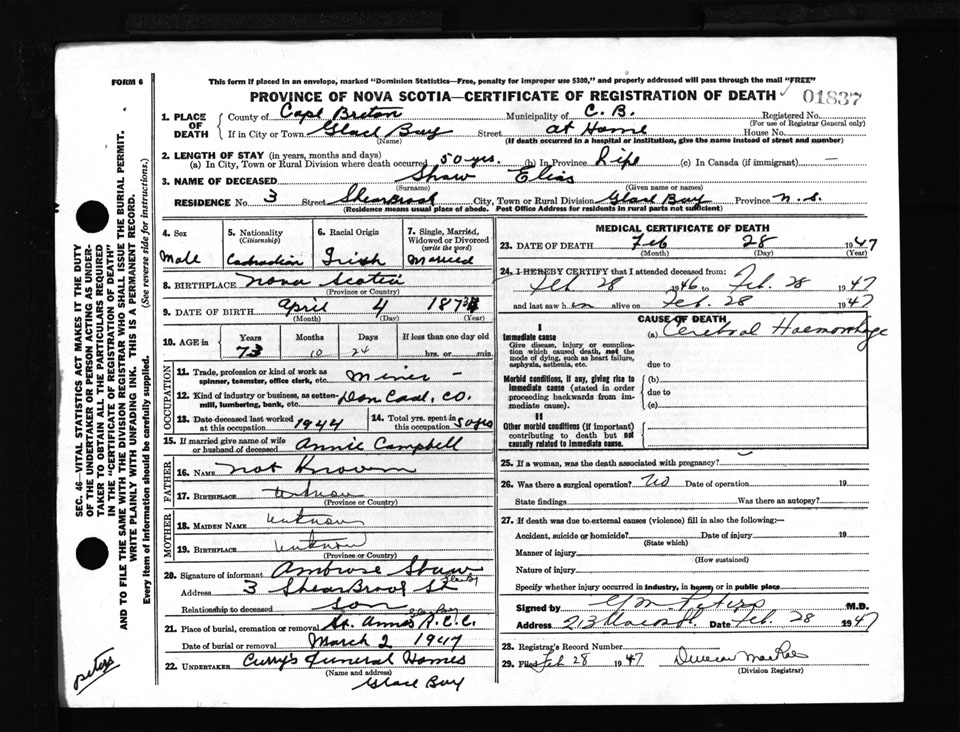 FORM 6
This form if placed in an envelope, marked "Dominion Statistics—Free, penalty for improper use $300," and properly addressed will pass through the mail "FREE"
PROVINCE OF NOVA SCOTIA—CERTIFICATE OF REGISTRATION OF DEATH 01837
1. PLACE OF DEATH County of Cape Breton Municipality of C. B. Registered No.
(For use of Registrar General only)
If in City or Town Glace Bay Street at Home House No.
(Name) (If death occurred in a hospital or institution, give the name instead of street and number)
2. LENGTH OF STAY (in years, months and days)
(a) In City, Town or Rural Division where death occurred 50 yrs. (b) In Province Life (c) In Canada (if immigrant) —
3. NAME OF DECEASED Shaw Elias
(Surname) (Given name or names)
RESIDENCE No. 3 Street City, Town or Rural Division Glace Bay Province N.S.
(Residence means usual place of abode. Post Office Address for residents in rural parts not sufficient)
4. Sex Male
5. Nationality (Citizenship) Canadian
6. Racial Origin Irish
7. Single, Married, Widowed or Divorced (write the word) Married
8. BIRTHPLACE Nova Scotia
(Province or Country)
9. DATE OF BIRTH April 4
(Month) (Day) (Year)
10. AGE in Years Months Days If less than one day old
73 10 24 hrs. or min.
OCCUPATION
11. Trade, profession or kind of work as spinner, teamster, office clerk, etc. Miner —
12. Kind of industry or business, as cotton-mill, lumbering, bank, etc. Dom Coal, Co.
13. Date deceased last worked at this occupation 1944
14. Total yrs. spent in this occupation 50 yrs
15. If married give name of wife or husband of deceased Annie Campbell
FATHER
16. NAME Not Known
17. BIRTHPLACE Unknown
(Province or Country)
MOTHER
18. MAIDEN NAME Unknown
19. BIRTHPLACE Unknown
(Province or Country)
20. Signature of informant Ambrose Shaw
Address 3 St
Relationship to deceased Son
21. Place of burial, cremation or removal St. Anne's R.C.C. Glace Bay
Date of burial or removal March 2 1947
22. UNDERTAKER Curry's Funeral Homes
(Name and address)
Glace Bay
MEDICAL CERTIFICATE OF DEATH
23. DATE OF DEATH Feb 28 1947
(Month) (Day) (Year)
24. I HEREBY CERTIFY that I attended deceased from:
Feb 28 1946 to Feb. 28 1947
and last saw h im alive on Feb. 28 1947
CAUSE OF DEATH
I
Immediate cause (a) Cerebral Haemorrhage
Give disease, injury or complication which caused death, not the mode of dying, such as heart failure, asphyxia, asthenia, etc.
due to
Morbid conditions, if any, giving rise to immediate cause (stated in order proceeding backwards from immediate cause).
(b)
due to
(c)
II
Other morbid conditions (if important) contributing to death but not causally related to immediate cause.
25. If a woman, was the death associated with pregnancy?
26. Was there a surgical operation? No Date of operation 19
State findings Was there an autopsy?
27. If death was due to external causes (violence) fill in also the following:—
Accident, suicide or homicide? Date of injury 19
(State which)
Manner of injury
(How sustained)
Nature of injury
Specify whether injury occurred in industry, in home, or in public place
Signed by M.D.
Address 213 Date Feb. 28 1947
28. Registrar's Record Number
29. Filed Feb 28 1947 Duncan MacRae
(Division Registrar)
SEC. 46—VITAL STATISTICS ACT MAKES IT THE DUTY
OF THE UNDERTAKER OR PERSON ACTING AS UNDER-
TAKER TO OBTAIN ALL THE PARTICULARS REQUIRED
IN THE "CERTIFICATE OF REGISTRATION OF DEATH"
AND TO FILE THE SAME WITH THE DIVISION REGISTRAR WHO SHALL ISSUE THE BURIAL PERMIT.
WRITE PLAINLY WITH UNFADING INK. THIS IS A PERMANENT RECORD.
Every item of information should be carefully supplied. (See reverse side for instructions.)